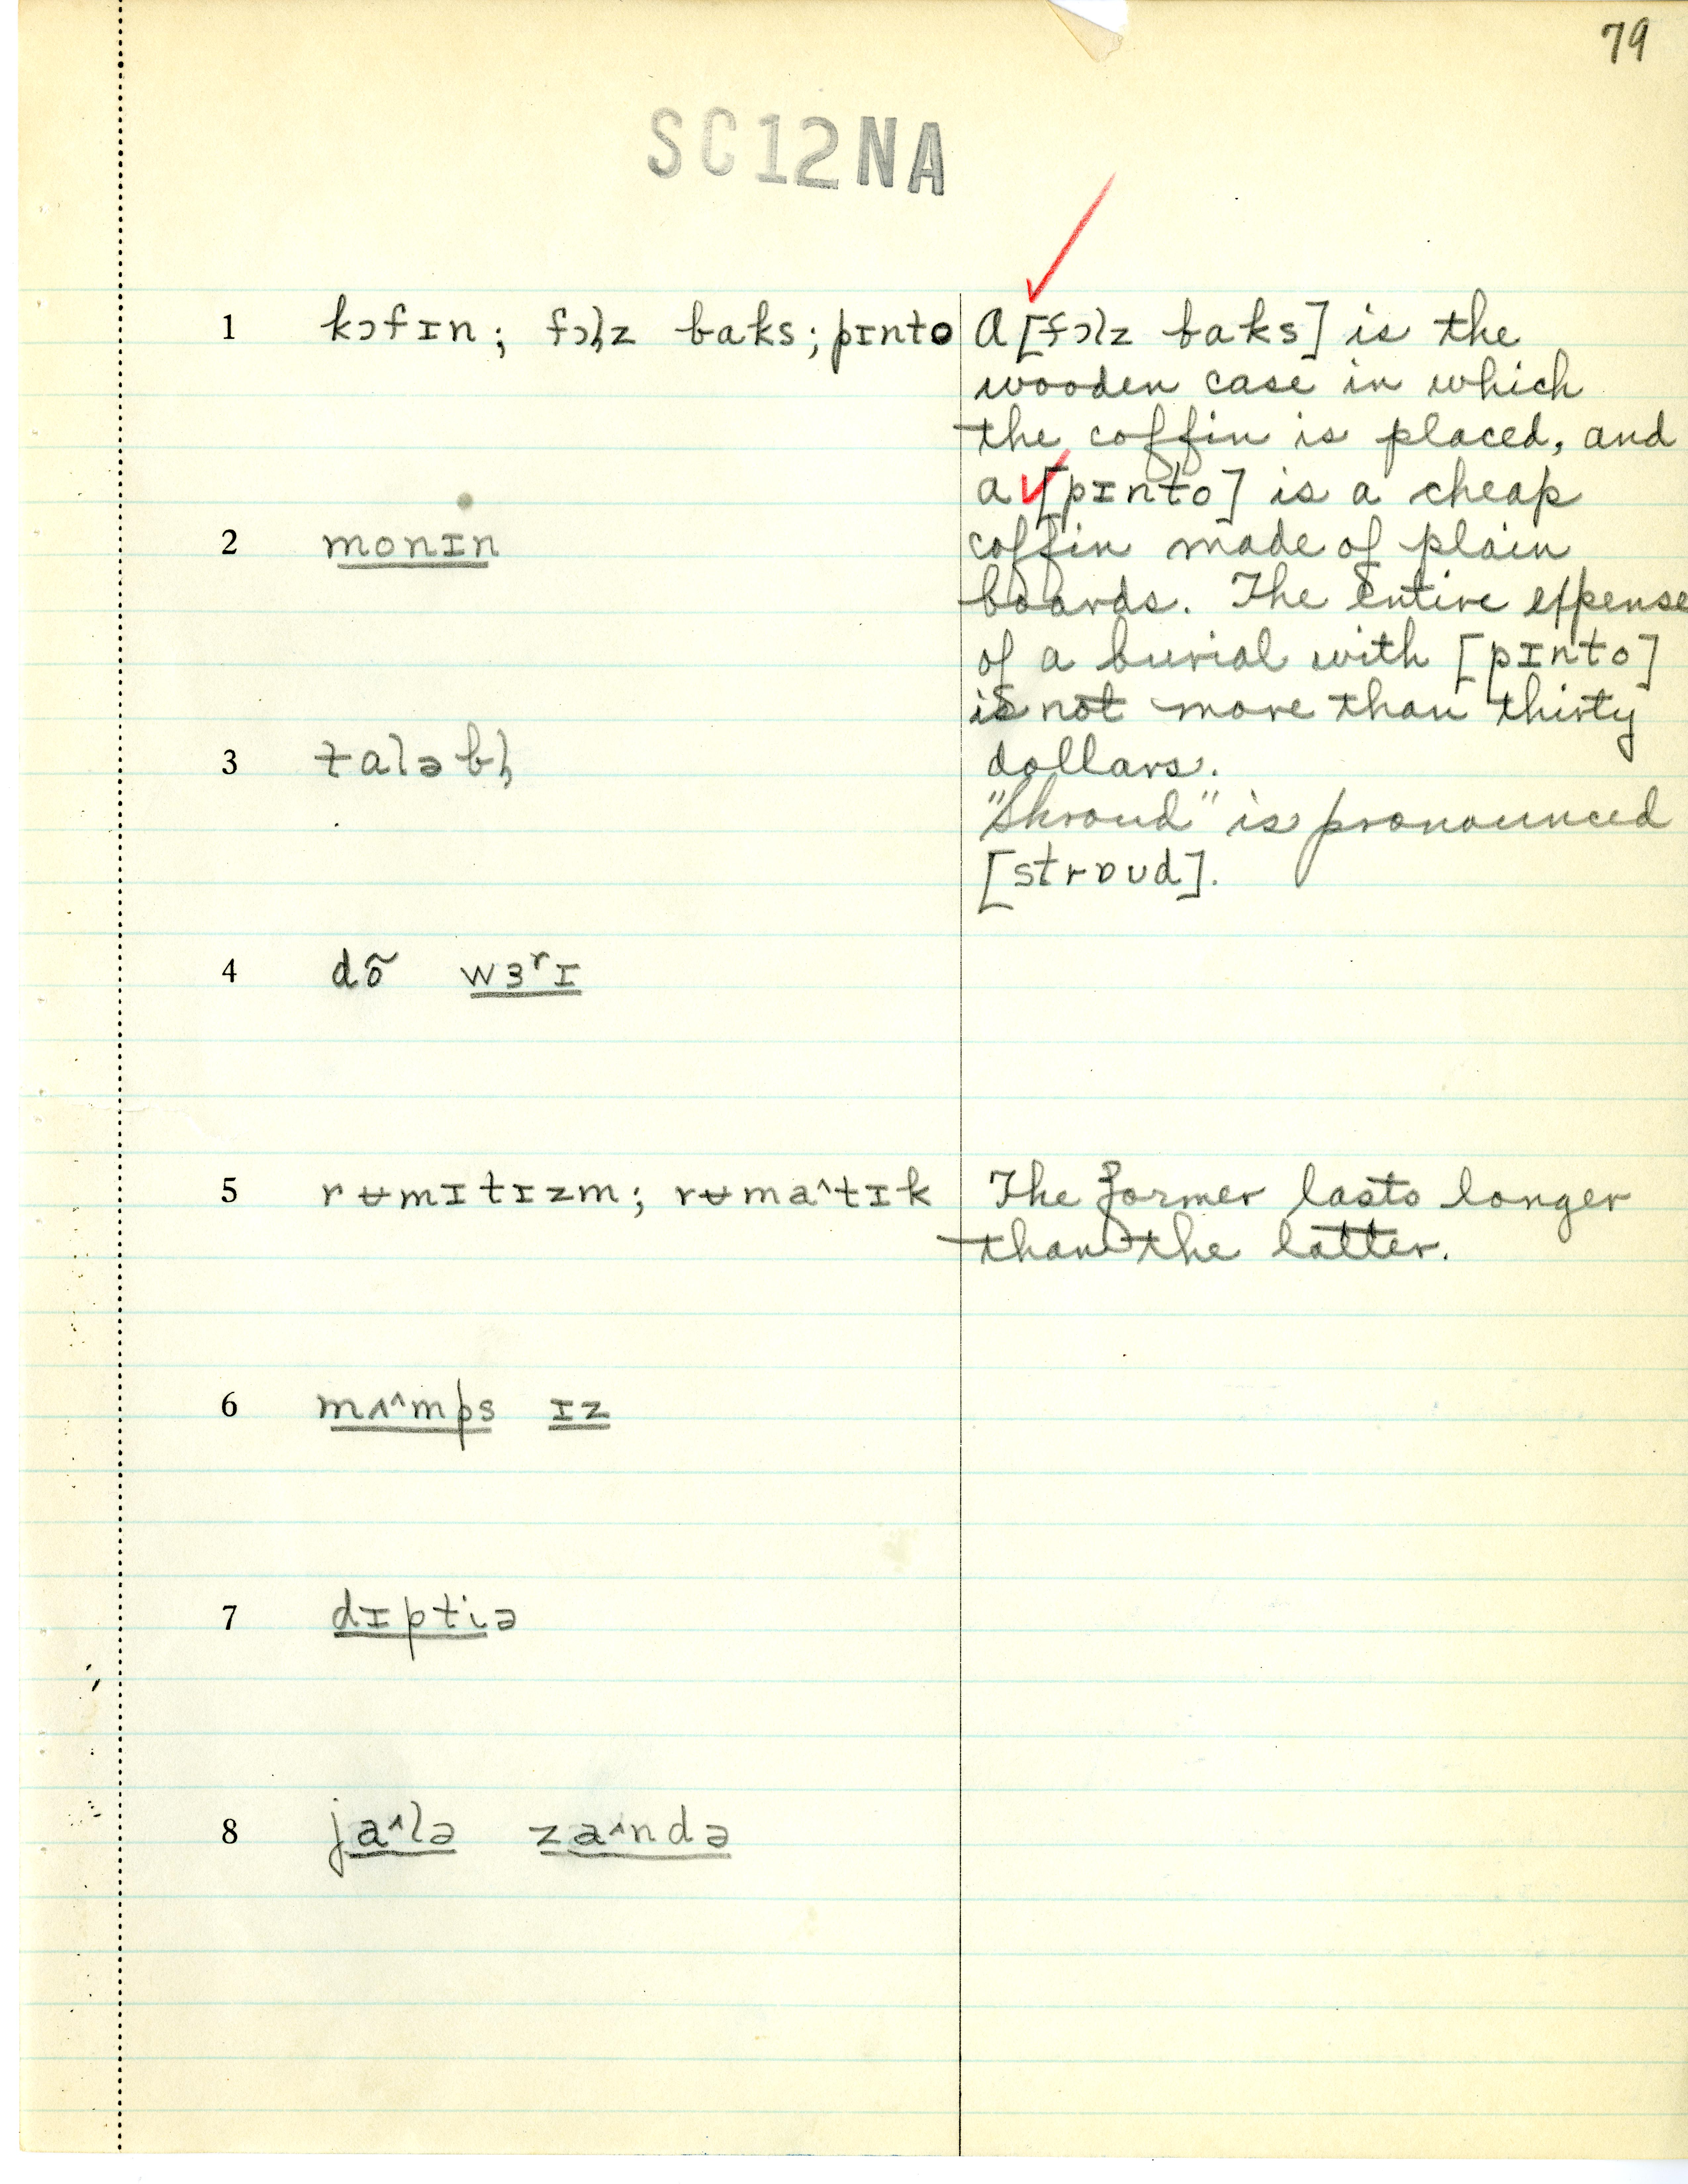 79
SC12NA
1 kɔfɪn; fɔl̩z baks; pɪnto
A [fɔlz baks] is the
wooden case in which
the coffin is placed, and
a [pɪnto] is a cheap
coffin made of plain
boards. The entire expense
of a burial with [pɪnto]
is not more than thirty
dollars.
"Shroud" is pronounced
[strɒud].
2 monɪn
3 taləbl̩
4 dõ wɜʳɪ
5 rʉmɪtɪzm; rʉma^tɪk
The former lasts longer
than the latter.
6 mʌ^mps ɪz
7 dɪptiə
8 ja^lə za^ndə